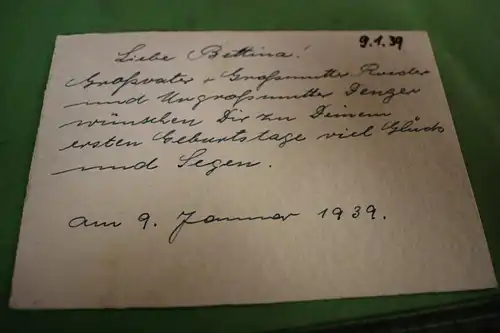 9.1.39
Liebe Bettina!
Großvater + Großmutter Roeder
und Urgroßmutter Denger
wünschen Dir zu Deinem
ersten Geburtstage viel Glück
und Segen.
am 9. Januar 1939.